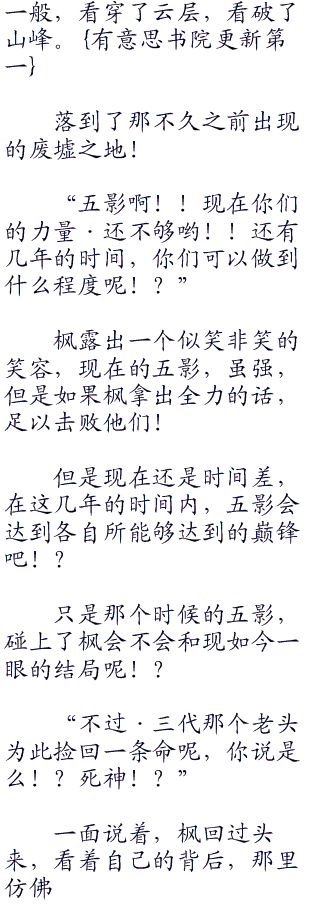 一般，看穿了云层，看破了
山峰。{有意思书院更新第
一}
落到了那不久之前出现
的废墟之地！
“五影啊！！现在你们
的力量·还不够哟！！还有
几年的时间，你们可以做到
什么程度呢！？”
枫露出一个似笑非笑的
笑容，现在的五影，虽强，
但是如果枫拿出全力的话，
足以击败他们！
但是现在还是时间差，
在这几年的时间内，五影会
达到各自所能够达到的巅锋
吧！？
只是那个时候的五影，
碰上了枫会不会和现如今一
眼的结局呢！？
“不过·三代那个老头
为此捡回一条命呢，你说是
么！？死神！？”
一面说着，枫回过头
来，看着自己的背后，那里
仿佛